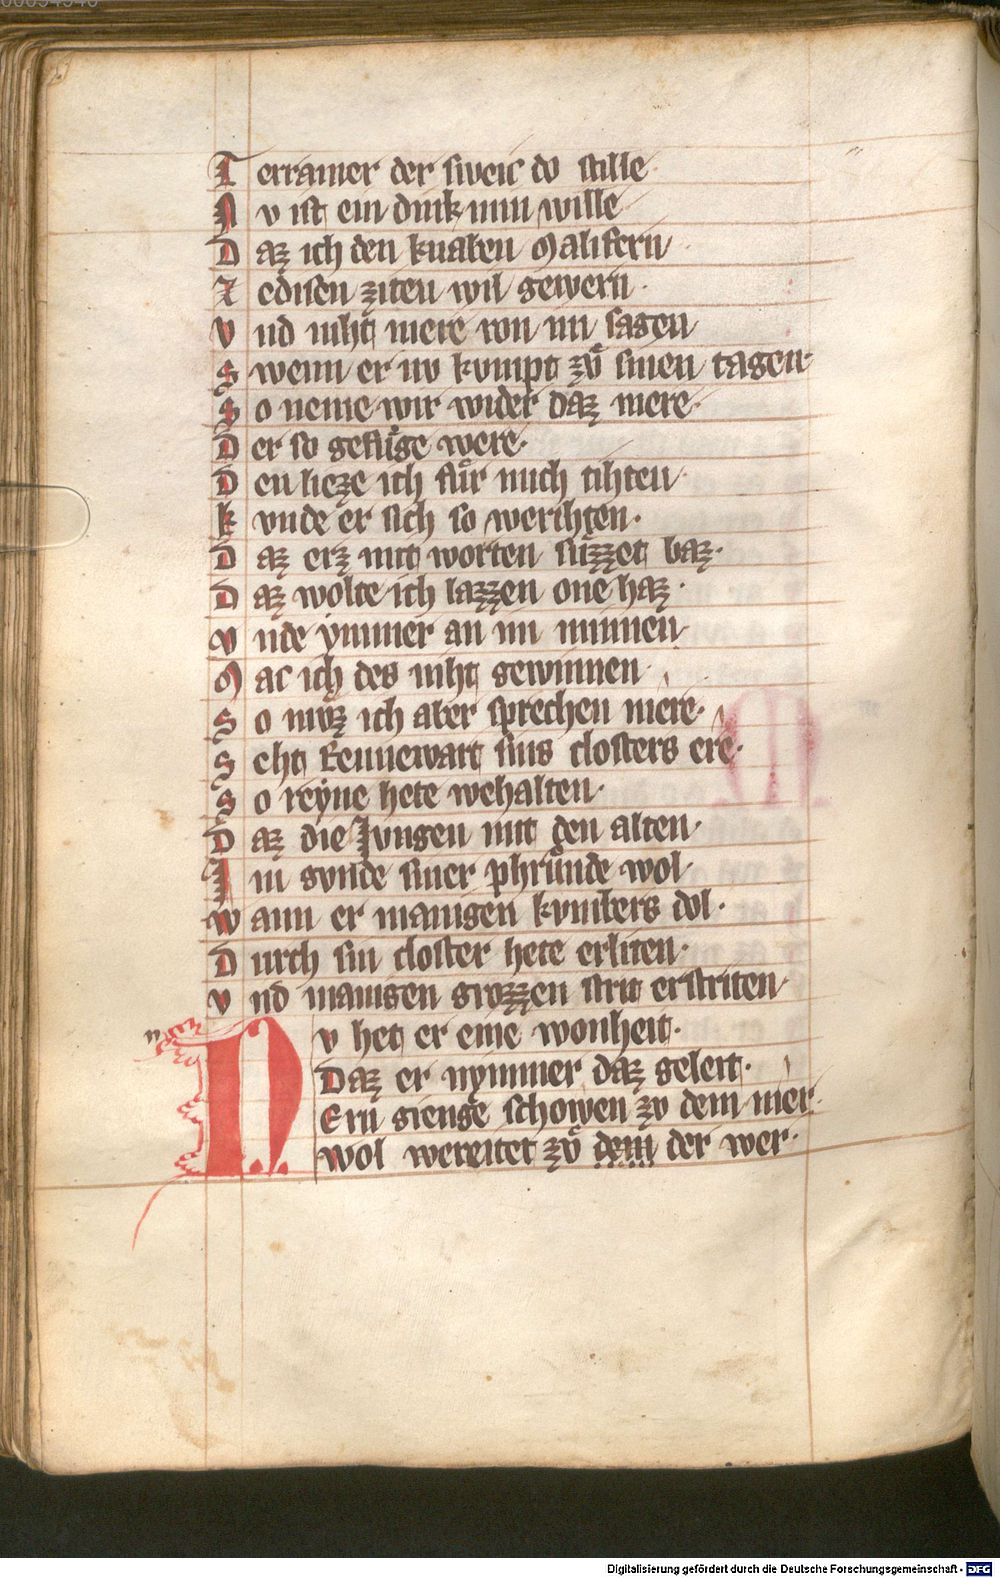 Terramer der sweic do stille
Nv ist ein dink min wille
Daz ich den knaben Malifern
Zedisen ziten wil gewern
Vnd niht mere von im sagen
Swenn er nv kvmpt zů sinen tagen
So neme wir wider daz mere
Der so gefůge were
Den lieze ich fůr mich tihten
kvnde er sich so werihten
Daz erz mit worten sůzzet baz
Daz wolte ich lazzen one haz
vnde ymmer an im minnen
Mac ich des niht gewinnen
So mvz ich aber sprechen mere
Seht Rennewart sins closters ere
So reyne hete wehalten
Daz die Jvngen mit den alten
Im gvnde siner phrůnde wol
wann er manigen kvmbers dol
Durch sin closter hete erliten
vnd manigen grozzen strit erstriten
Nv het er eine wonheit
Daz er nymmer daz geleit
Ern gienge schowen zv dem mer
Wol wereitet zů dem der wer
Digitalisierung gefördert durch die Deutsche Forschungsgemeinschaft - DFG